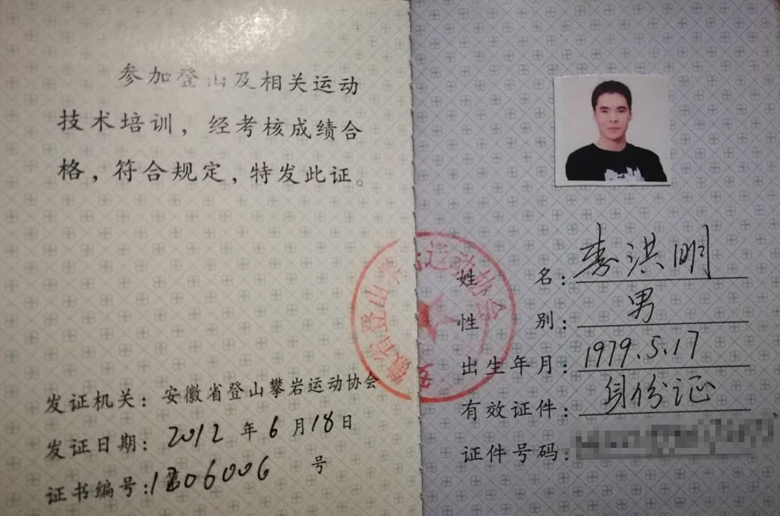 参加登山及相关运动
技术培训，经考核成绩合
格，符合规定，特发此证。
发证机关：安徽省登山攀岩运动协会
发证日期：2012 年 6 月 18 日
证书编号：06006 号
安徽省登山攀岩运动协会
姓 名：李洪明
性 别：男
出生年月：1979.5.17
有效证件：身份证
证件号码：